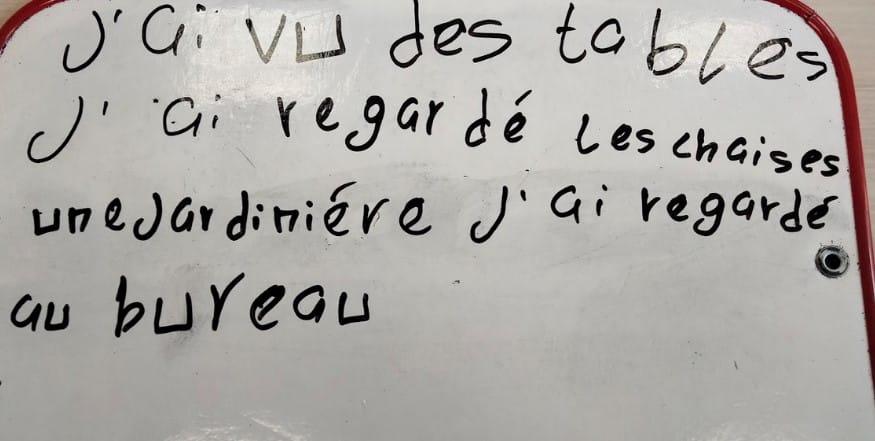 J'ai vu des tables
J'ai regardé les chaises
une Jardiniére J'ai regardé
au bureau